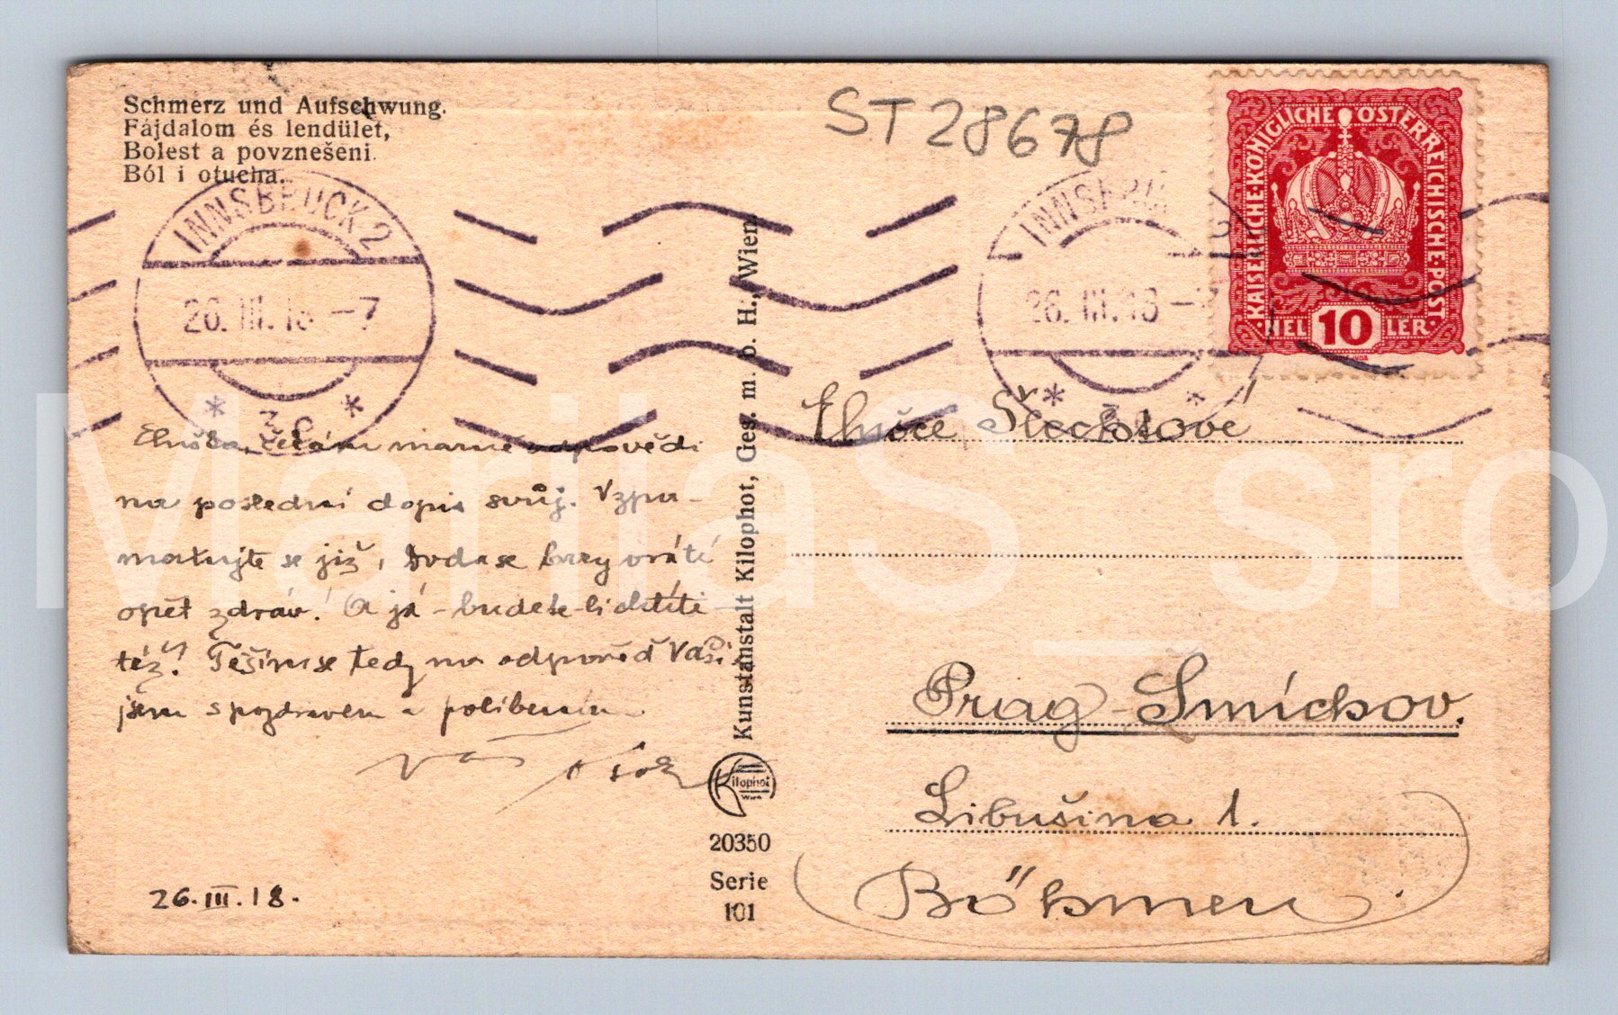 Schmerz und Aufschwung.
Fájdalom és lendület,
Bolest a povznešeni.
Ból i otucha.
ST 28678
KAISERLICHE KÖNIGLICHE ÖSTERREICHISCHE POST
HEL 10 LER
INNSBRUCK 2
26. III. 18 - 7
* 3c *
INNSBRU
26. III. 18 -
Eluška, čekám marně odpovědi
na poslední dopis svůj. Vzpa-
matujte se již,
opět zdráv! A já - budete-li chtíti -
též! Těším se tedy na odpověď Vaši
jsem s pozdravem a políbením
Váš
26.III.18.
Kunstanstalt Kilophot, Ges. m. b. H., Wien
Kilophot
Wien
20350
Serie
101
Šlechtové
Prag - Smíchov.
Libušina 1.
Böhmen.
MarilaS_sro